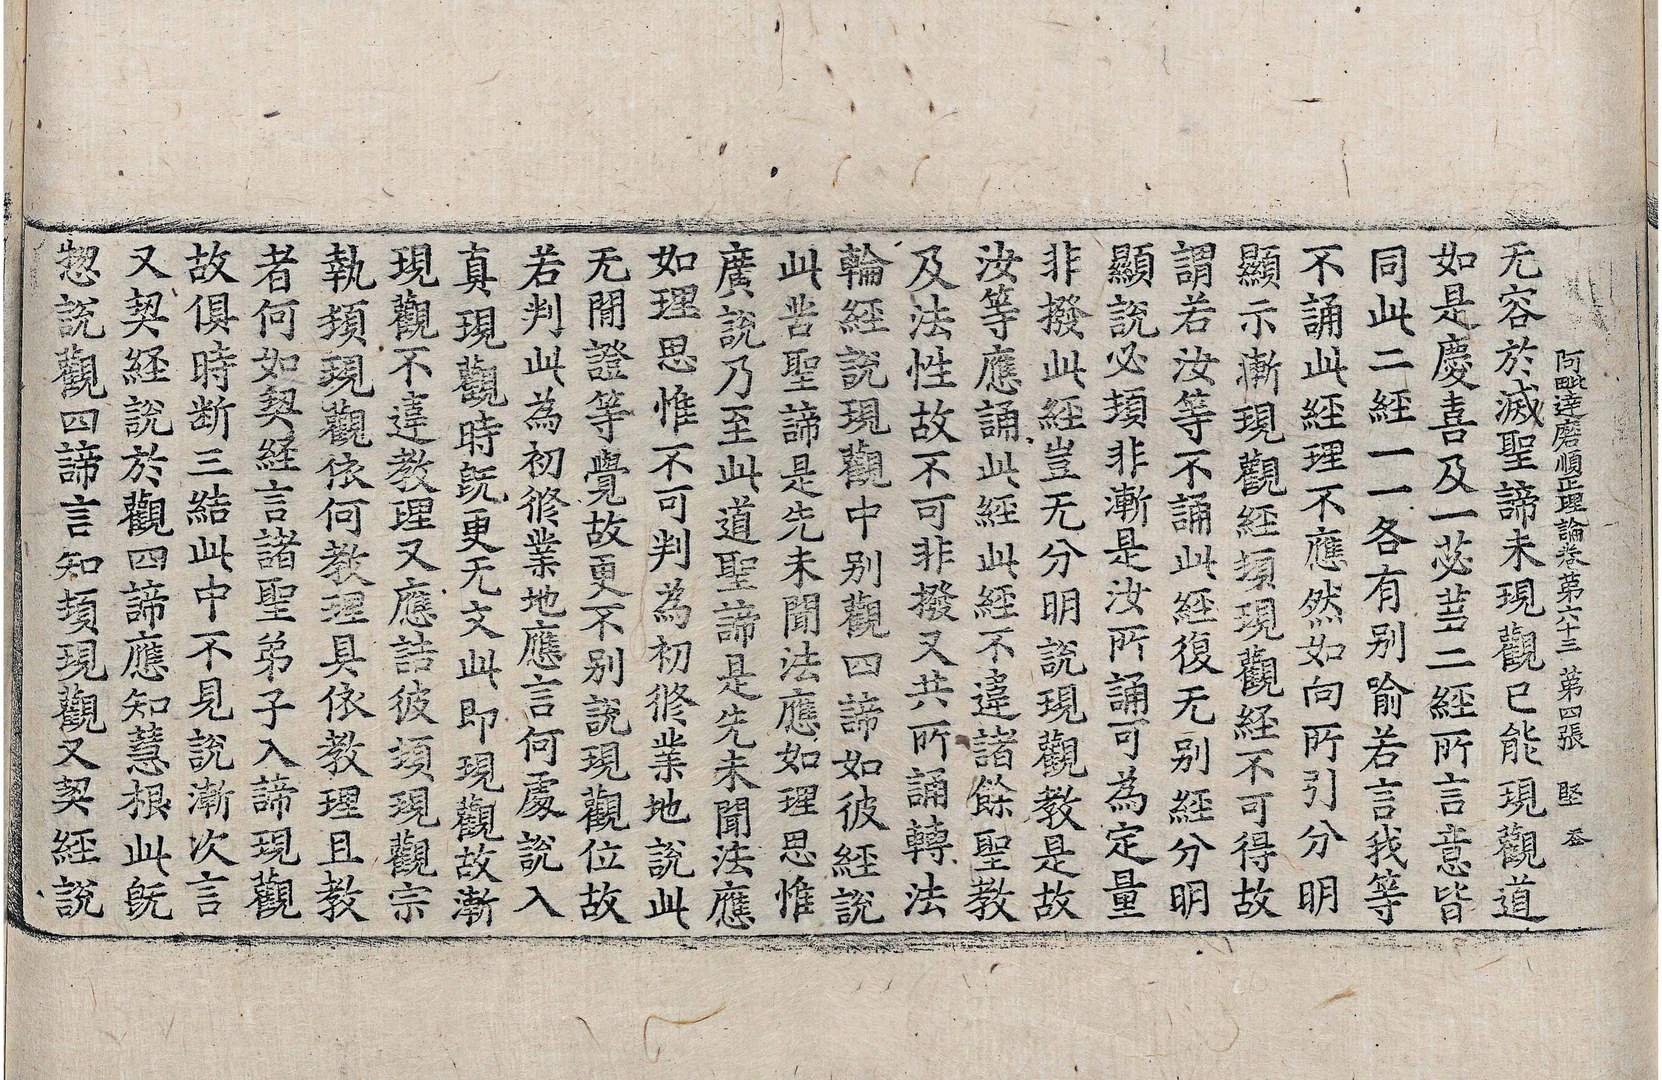 阿毗達磨順正理論卷第六十三 第四張 堅
无容於滅聖諦未現觀已能現觀道
如是慶喜及一苾芻二經所言意皆
同此二經一一各有別喻若言我等
不誦此經理不應然如向所引分明
顯示漸現觀經頓現觀經不可得故
謂若汝等不誦此經復无別經分明
顯說必頓非漸是汝所誦可為定量
非撥此經豈无分明說現觀教是故
汝等應誦此經此經不違諸餘聖教
及法性故不可非撥又共所誦轉法
輪經說現觀中別觀四諦如彼經說
此苦聖諦是先未聞法應如理思惟
廣說乃至此道聖諦是先未聞法應
如理思惟不可判為初修業地說此
无間證等覺故更不別說現觀位故
若判此為初修業地應言何處說入
真現觀時既更无文此即現觀故漸
現觀不違教理又應詰彼頓現觀宗
執頓現觀依何教理具依教理且教
者何如契經言諸聖弟子入諦現觀
故俱時断三結此中不見說漸次言
又契經說於觀四諦應知慧根此既
惣說觀四諦言知頓現觀又契經說